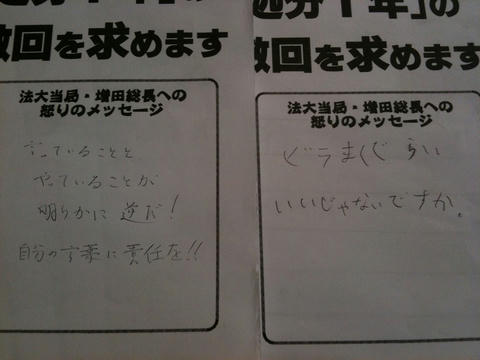 処分1年」の
撤回を求めます
法大当局・増田総長への
怒りのメッセージ
言っていることと
やっていることが
明らかに逆だ!
自分の言葉に責任を!!
処分1年」の
撤回を求めます
法大当局・増田総長への
怒りのメッセージ
ビラまくぐらい
いいじゃないですか。